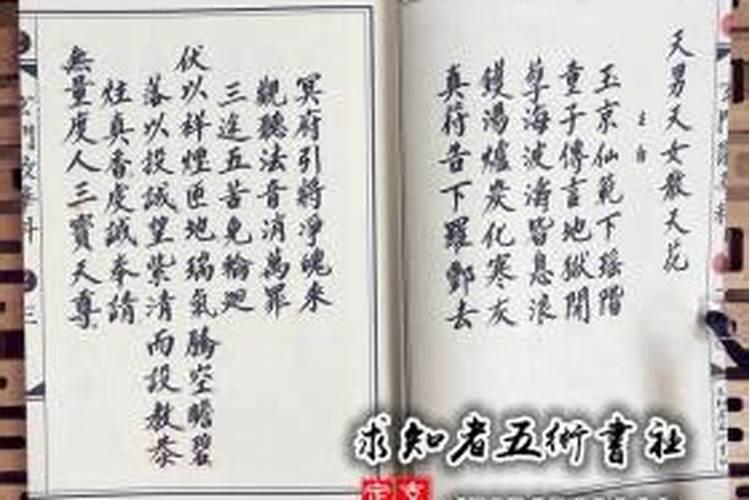 天男天女散天花
玉京仙範下瑶階
童子傳言地獄開
孽海波濤皆息浪
鑊湯爐炭化寒灰
真符告下羅酆去
冥府引將淨魄來
觀聽法音消萬罪
三途五苦免輪迴
伏以祥煙匝地瑞氣騰空瞻碧
落以投誠望紫清而設教恭
炷真香虔誠奉請
無量度人三寶天尊
三
求知者五術書社